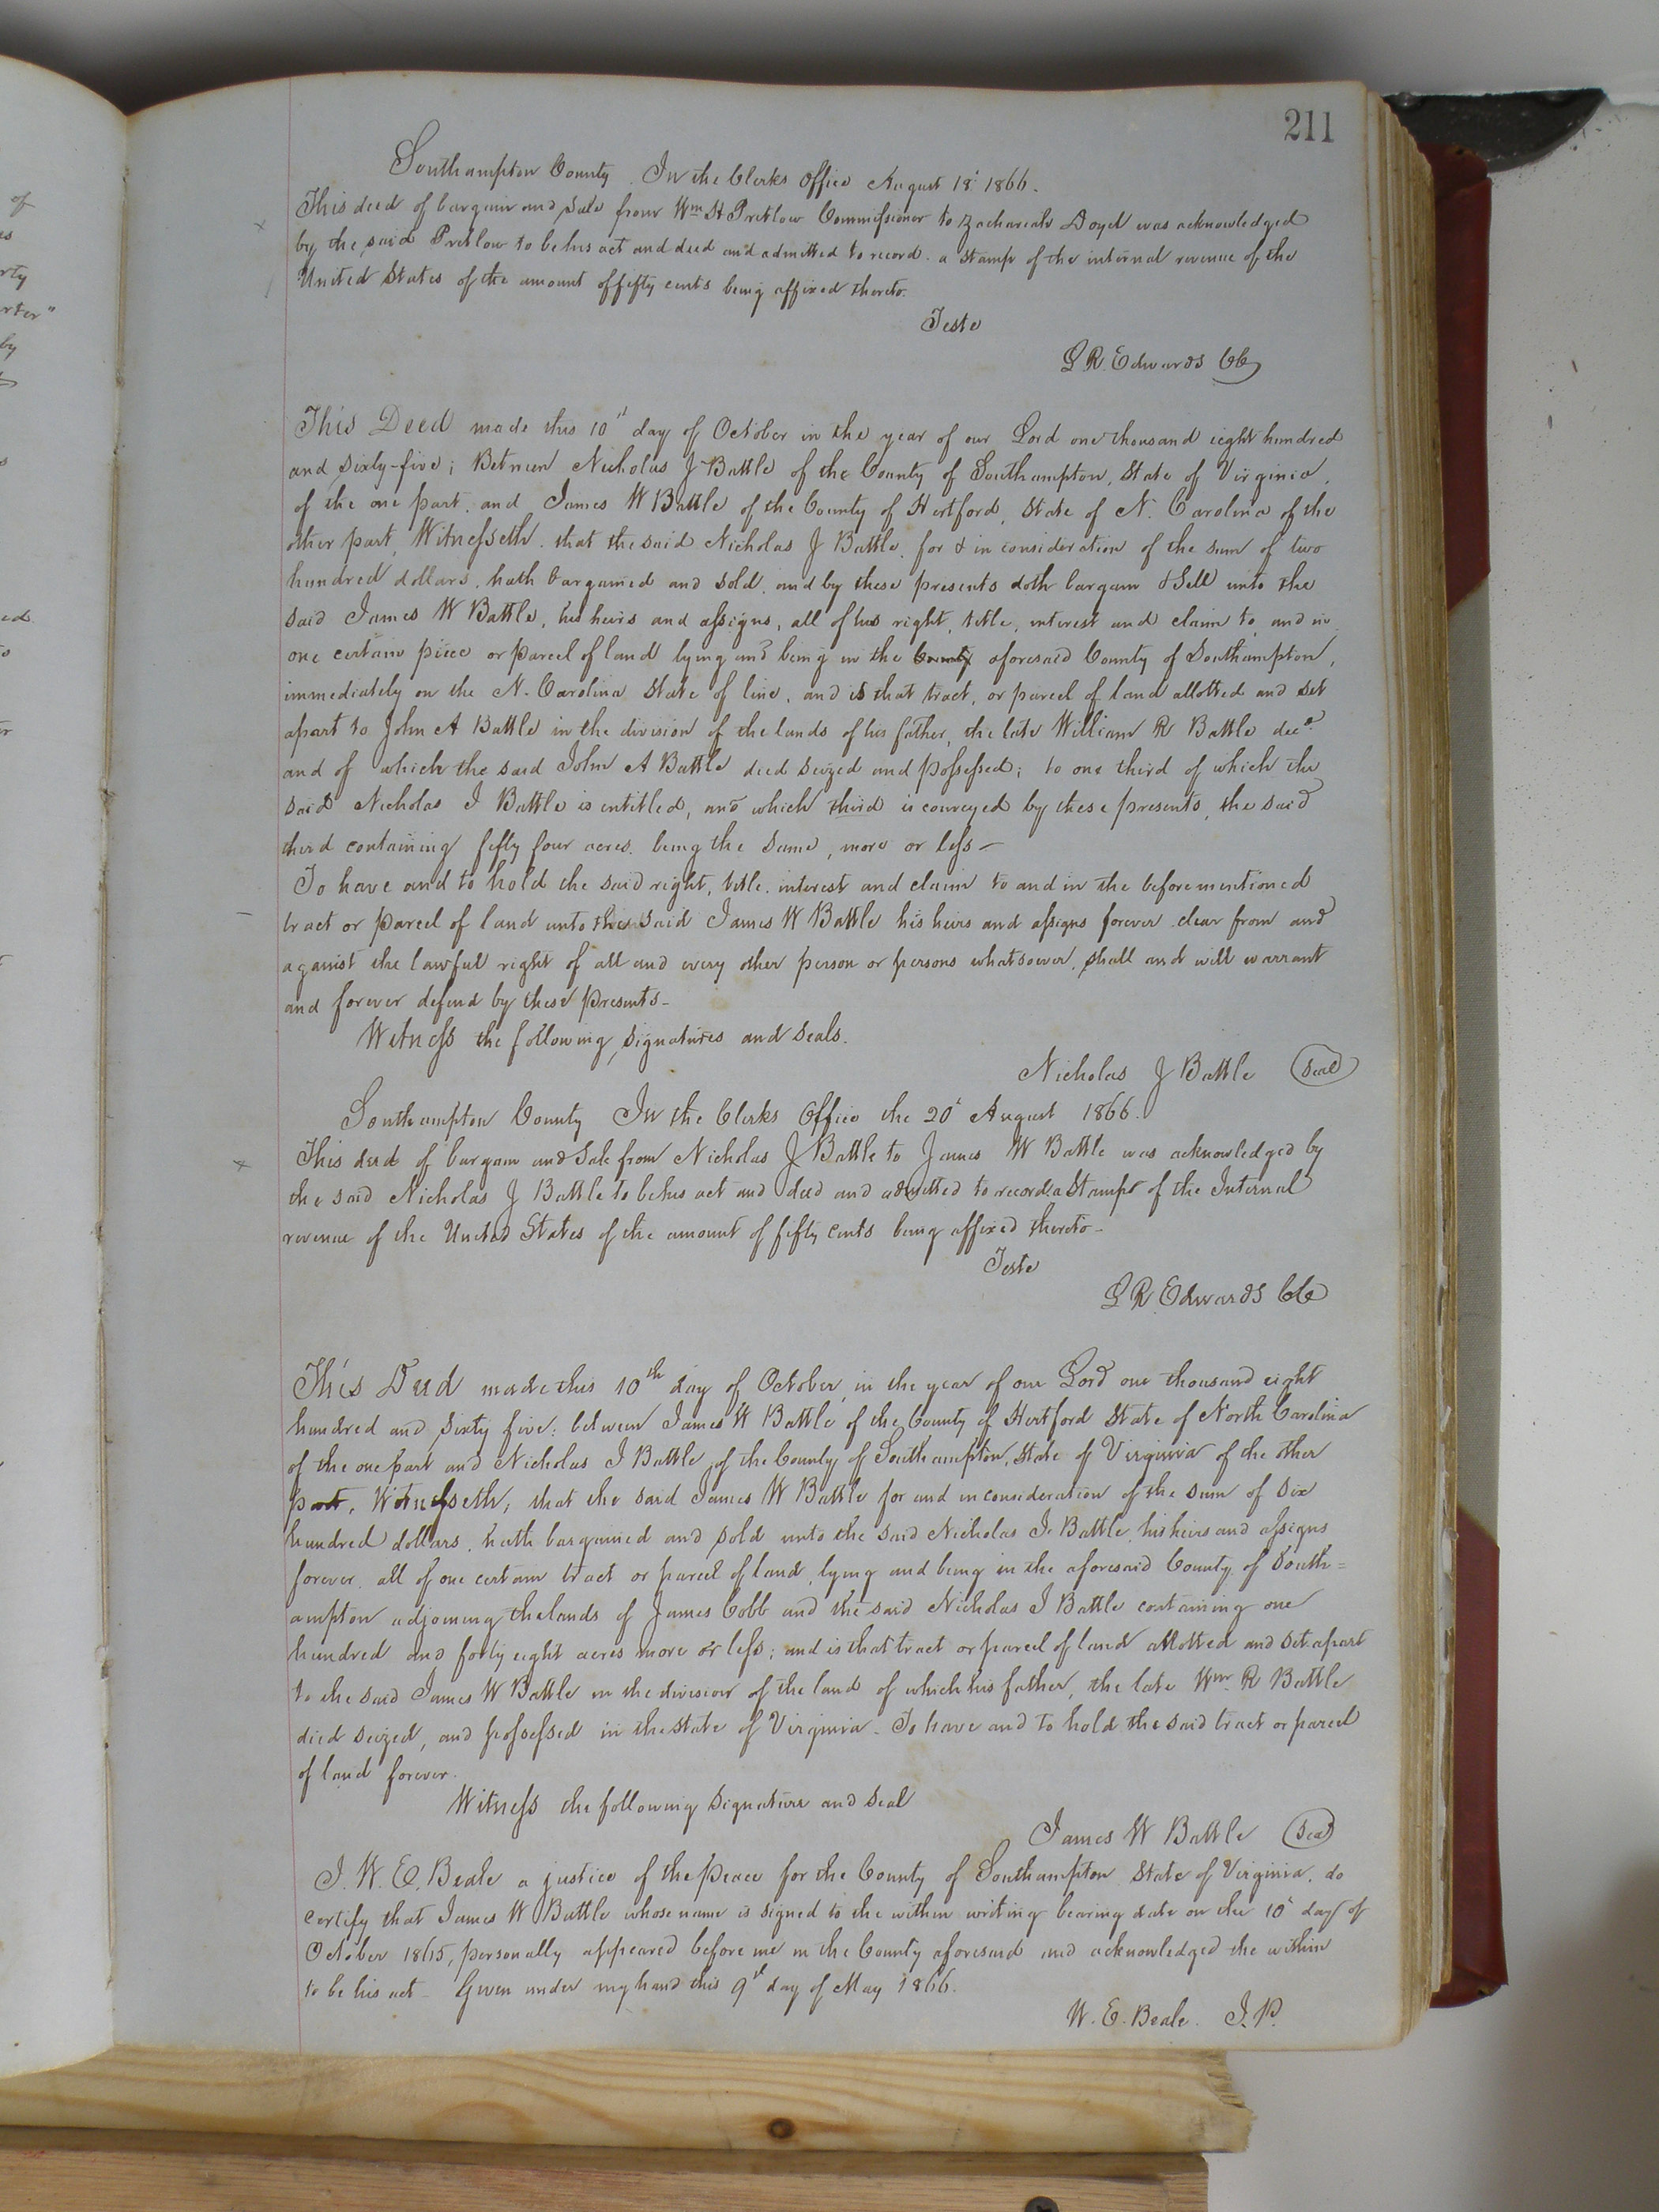 211
Southampton County. In the Clerks Office August 18' 1866.
This deed of bargain and sale from Wm H Pretlow Commissioner to Zachareah Boyd was acknowledged
by the said Pretlow to be his act and deed and admitted to record. a stamp of the internal revenue of the
United States of the amount of fifty cents being affixed thereto.
Teste
L R. Edwards CC
This Deed made this 10th day of October in the year of our Lord one thousand eight hundred
and sixty-five; Between Nicholas J Battle of the County of Southampton, State of Virginia,
of the one part, and James W Battle of the County of Hertford, State of N. Carolina of the
other part, Witnesseth. that the said Nicholas J Battle, for & in consideration of the sum of two
hundred dollars, hath bargained and sold, and by these presents doth bargain & sell unto the
said James W Battle, his heirs and assigns, all of his right, title, interest and claim to, and in
one certain piece or parcel of land lying and being in the County aforesaid County of Southampton,
immediately on the N. Carolina State of line, and is that tract, or parcel of land allotted and set
apart to John A Battle in the division of the lands of his father, the late William R Battle decd
and of which the said John A Battle died seized and possessed; to one third of which the
said Nicholas J Battle is entitled, and which third is conveyed by these presents, the said
third containing fifty four acres, being the same, more or less –
To have and to hold the said right, title, interest and claim to and in the before mentioned
tract or parcel of land unto the said James W Battle his heirs and assigns forever clear from and
against the lawful right of all and every other person or persons whatsoever, shall and will warrant
and forever defend by these presents –
Witness the following signatures and seals.
Nicholas J Battle (Seal)
Southampton County In the Clerks Office the 20' August 1866.
This deed of bargain and sale from Nicholas J Battle to James W Battle was acknowledged by
the said Nicholas J Battle to be his act and deed and admitted to record. a stamp of the Internal
revenue of the United States of the amount of fifty cents being affixed thereto –
Teste
L R. Edwards CC
This Deed made this 10th day of October, in the year of our Lord one thousand eight
hundred and sixty five: between James W Battle of the County of Hertford State of North Carolina
of the one part and Nicholas J Battle, of the County of Southampton, State of Virginia of the other
part, Witnesseth, that the said James W Battle for and in consideration of the sum of six
hundred dollars, hath bargained and sold unto the said Nicholas J. Battle, his heirs and assigns
forever, all of one certain tract or parcel of land, lying and being in the aforesaid County of South=
ampton adjoining the lands of James Cobb and the said Nicholas J Battle containing one
hundred and forty eight acres more or less; and is that tract or parcel of land allotted and set apart
to the said James W Battle in the division of the land of which his father, the late Wm R Battle
died seized, and possessed in the state of Virginia – To have and to hold the said tract or parcel
of land forever.
Witness the following signature and seal
James W Battle (Seal)
I. W. E. Beale a justice of the peace for the County of Southampton State of Virginia, do
certify that James W Battle whose name is signed to the within writing bearing date on the 10' day of
October 1865, personally appeared before me in the County aforesaid and acknowledged the within
to be his act – Given under my hand this 9th day of May 1866.
W. E. Beale. J.P.